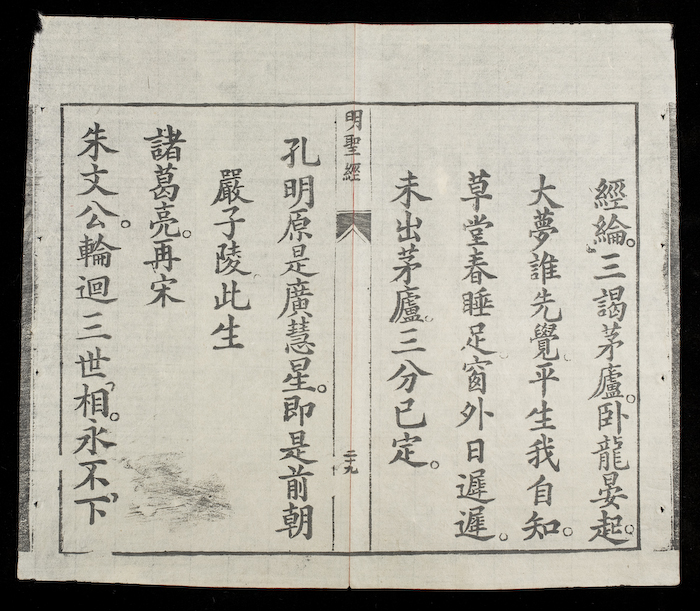 經綸。三謁茅廬。卧龍晏起。
大夢誰先覺。平生我自知。
草堂春睡足。窗外日遲遲。
未出茅廬。三分已定。
明聖經
二十九
孔明原是廣慧星。即是前朝
嚴子陵此生
諸葛亮。再宋
朱文公。輪迴三世相。永不下